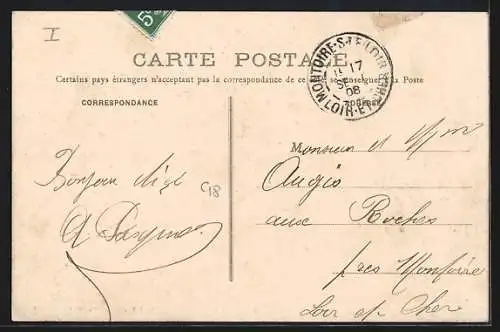 I
5
CARTE POSTALE
Certains pays étrangers n'acceptant pas la correspondance de ce se renseigner à la Poste
CORRESPONDANCE
MONTOIRE-S-LE-LOIR
17
SE
08
LOIR-ET-CHER
Monsieur et Mme
Augis
aux Roches
près Montoire
Loir et Cher
Bonjour
C18
A